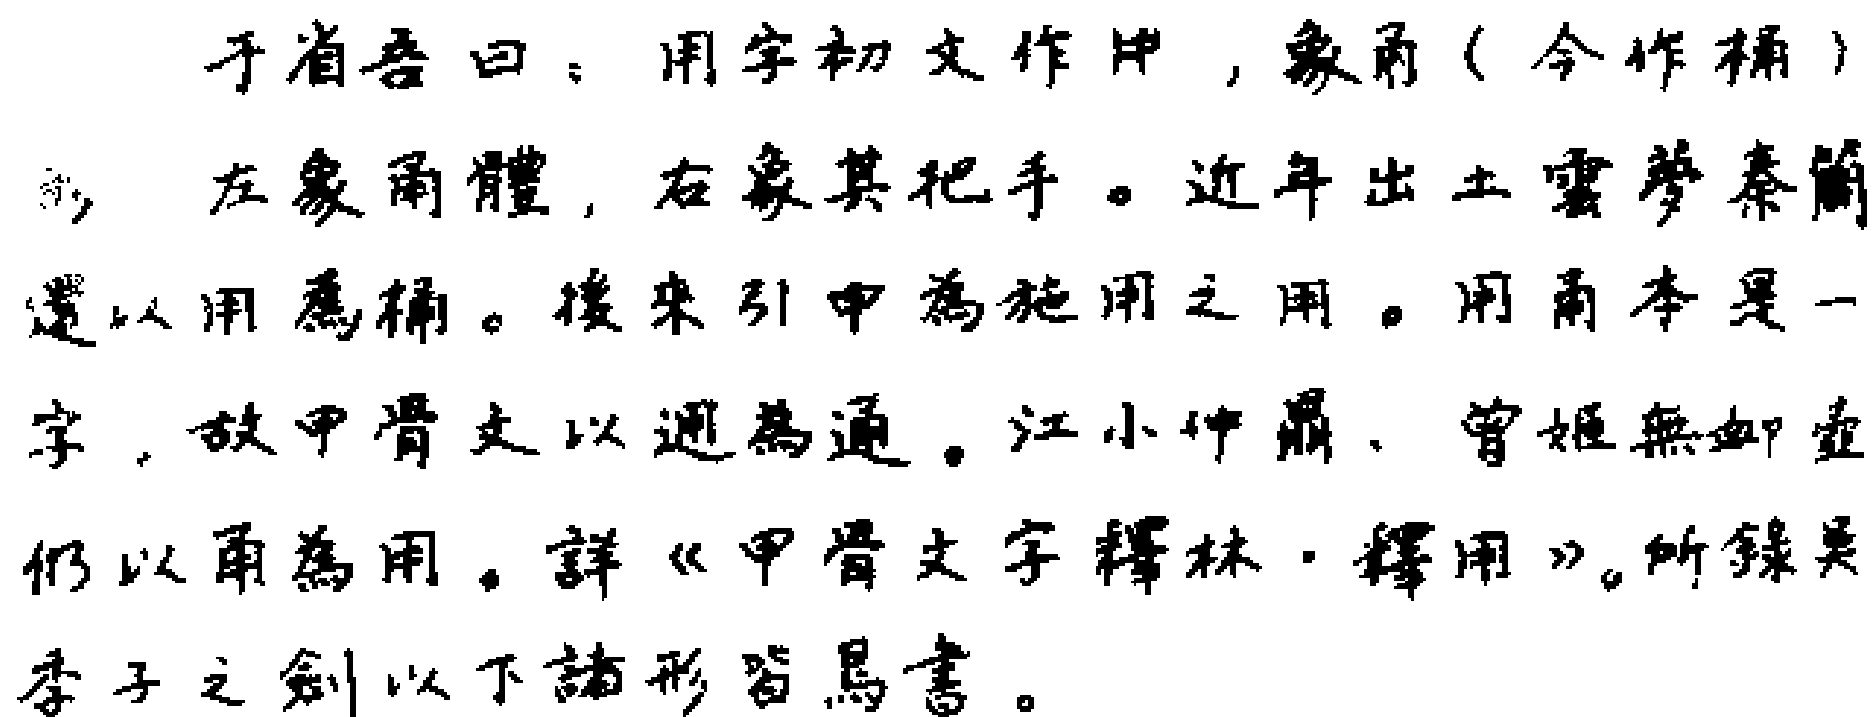 于省吾曰：用字初文作𠁩，象甬（今作桶）
形，左象甬體，右象其把手。近年出土雲夢秦簡
還以用爲桶。後來引申爲施用之用。用甬本是一
字，故甲骨文以迵爲通。江小仲鼎、曾姬無卹壺
仍以甬爲用。詳《甲骨文字釋林·釋用》。所錄吴
季子之劍以下諸形皆鳥書。